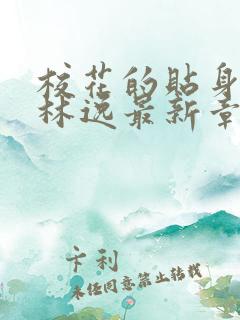 校花的贴身
林逸最新章
卡利
未经同意禁止转载